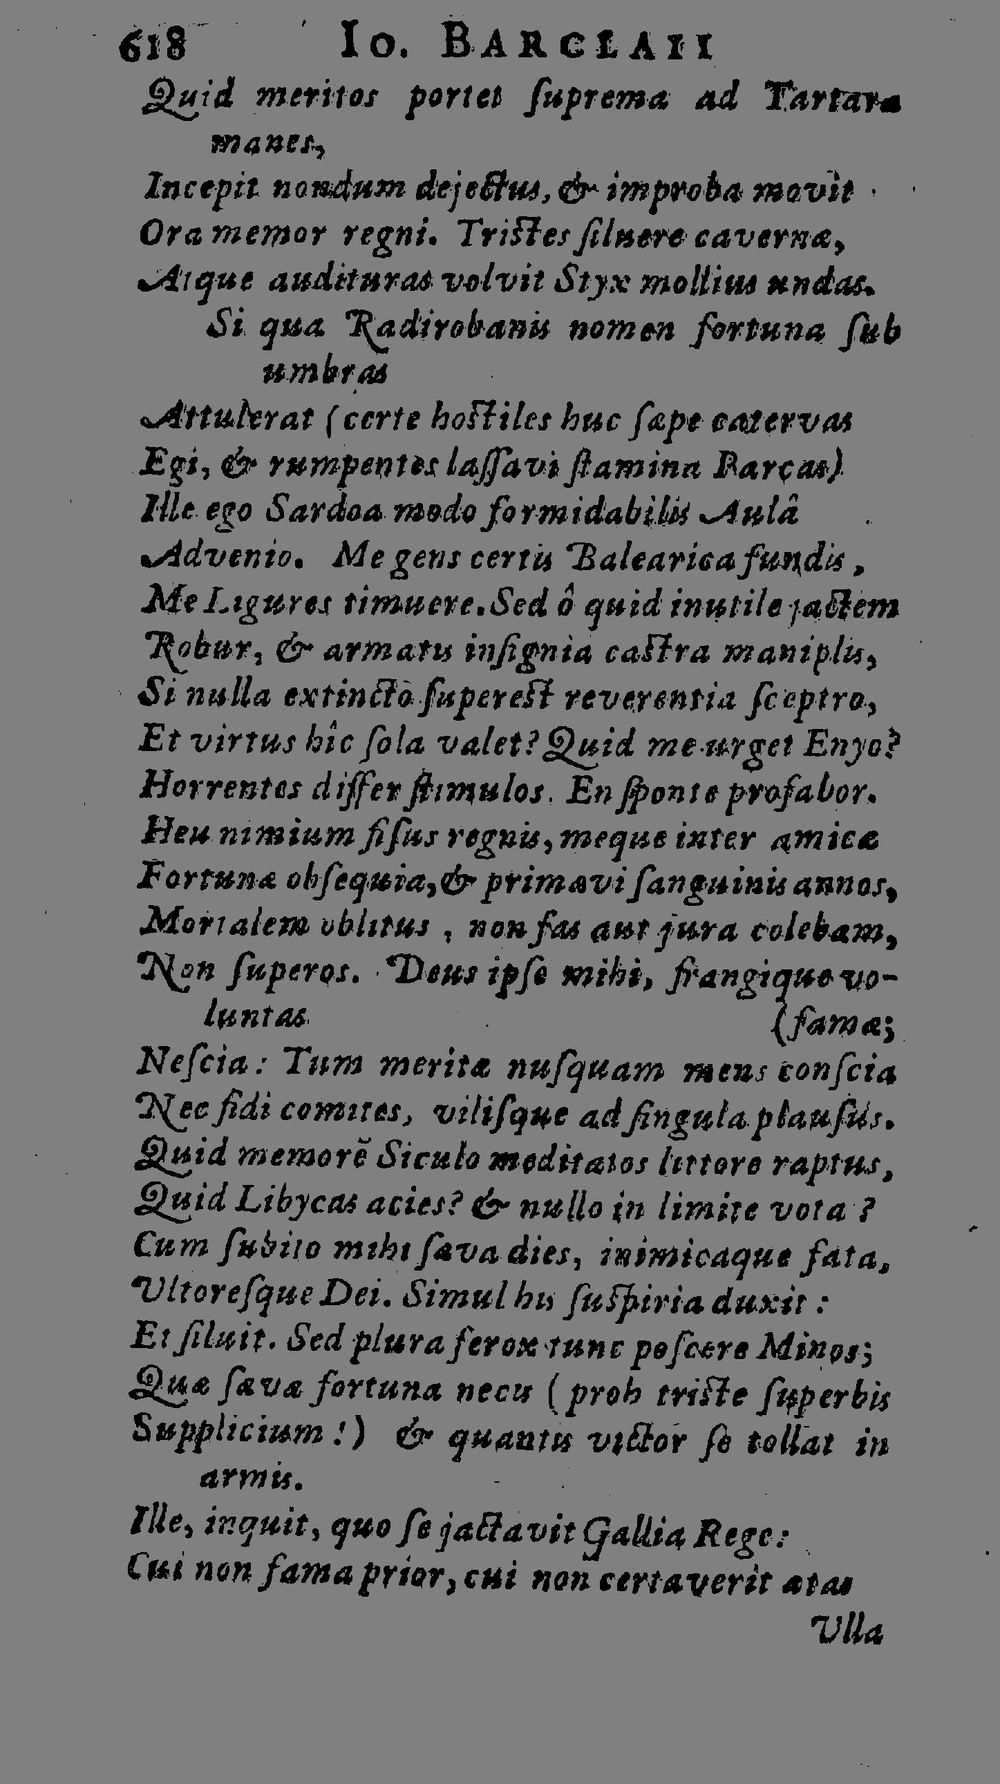 618 Io. BARCLAII
Quid meritos portet ſuprema ad Tartara
manes,
Incepit nondum dejectus, & improba movit
Ora memor regni. Triſtes ſiluere cavernæ,
Atque audituras volvit Styx mollius undas.
Si qua Radirobanis nomen fortuna ſub
umbras
Attulerat (certe hoſtiles huc ſæpe catervas
Egi, & rumpentes laſſavi ſtamina Parcas)
Ille ego Sardoa modo formidabilis Aulâ
Advenio. Me gens certis Balearica fundis,
Me Ligures timuere. Sed ô quid inutile jactem
Robur, & armatis inſignia caſtra maniplis,
Si nulla extincto ſupereſt reverentia ſceptro,
Et virtus hîc ſola valet? Quid me urget Enyo?
Horrentes differ ſtimulos. En ſponte profabor.
Heu nimium fiſus regnis, meque inter amicæ
Fortunæ obſequia, & primævi ſanguinis annos,
Mortalem oblitus, non fas aut jura colebam,
Non ſuperos. Deus ipſe mihi, frangique vo-
luntas (famæ;
Neſcia: Tum meritæ nuſquam mens conſcia
Nec fidi comites, viliſque ad ſingula plauſus.
Quid memorē Siculo meditatos littore raptus,
Quid Libycas acies? & nullo in limite vota?
Cum ſubito mihi ſæva dies, inimicaque fata,
Ultoreſque Dei. Simul his ſuſpiria duxit:
Et ſiluit. Sed plura ferox tunc poſcere Minos;
Quæ ſæva fortuna necis (proh triſte ſuperbis
Supplicium!) & quantis victor ſe tollat in
armis.
Ille, inquit, quo ſe jactavit Gallia Rege:
Cui non fama prior, cui non certaverit ætas
Ulla